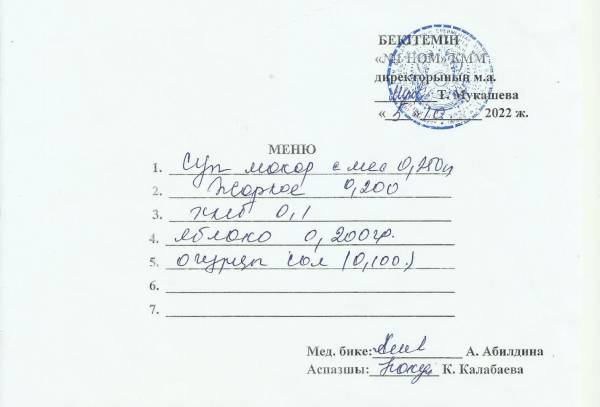 БЕКІТЕМІН
«№1 НОМ» КММ
директорының м.а.
Т. Мукашева
« 5 » 10 2022 ж.
МЕНЮ
1. Суп макар с мяс 0,250гр
2. Жаркое 0,200
3. хлеб 0,1
4. яблоко 0,200гр.
5. огурцы сол (0,100)
6.
7.
Мед. бике: А. Абилдина
Аспазшы: К. Калабаева